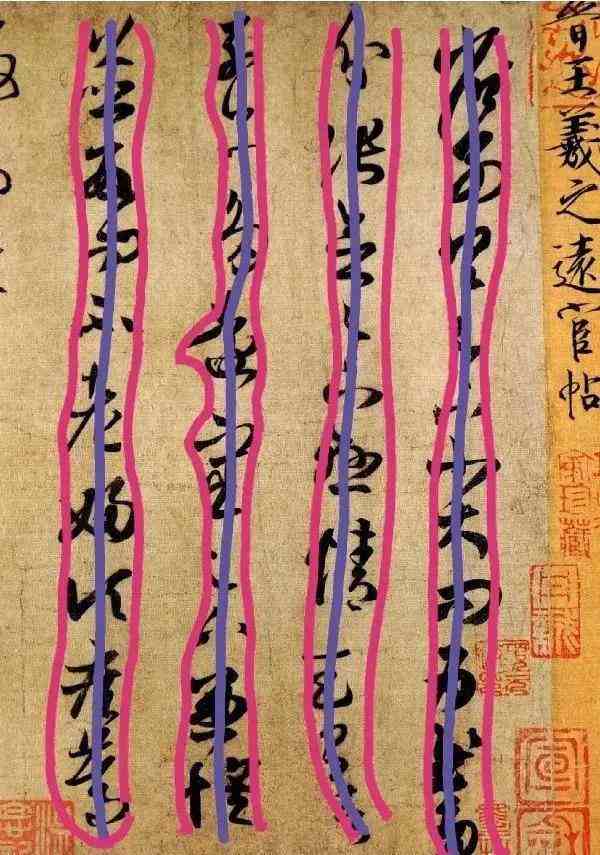 晉王羲之遠宦帖
省別具足下小大問為慰多
分張念足下懸情武昌諸
子亦多遠宦足下兼懷
並數問不老婦頃疾篤救